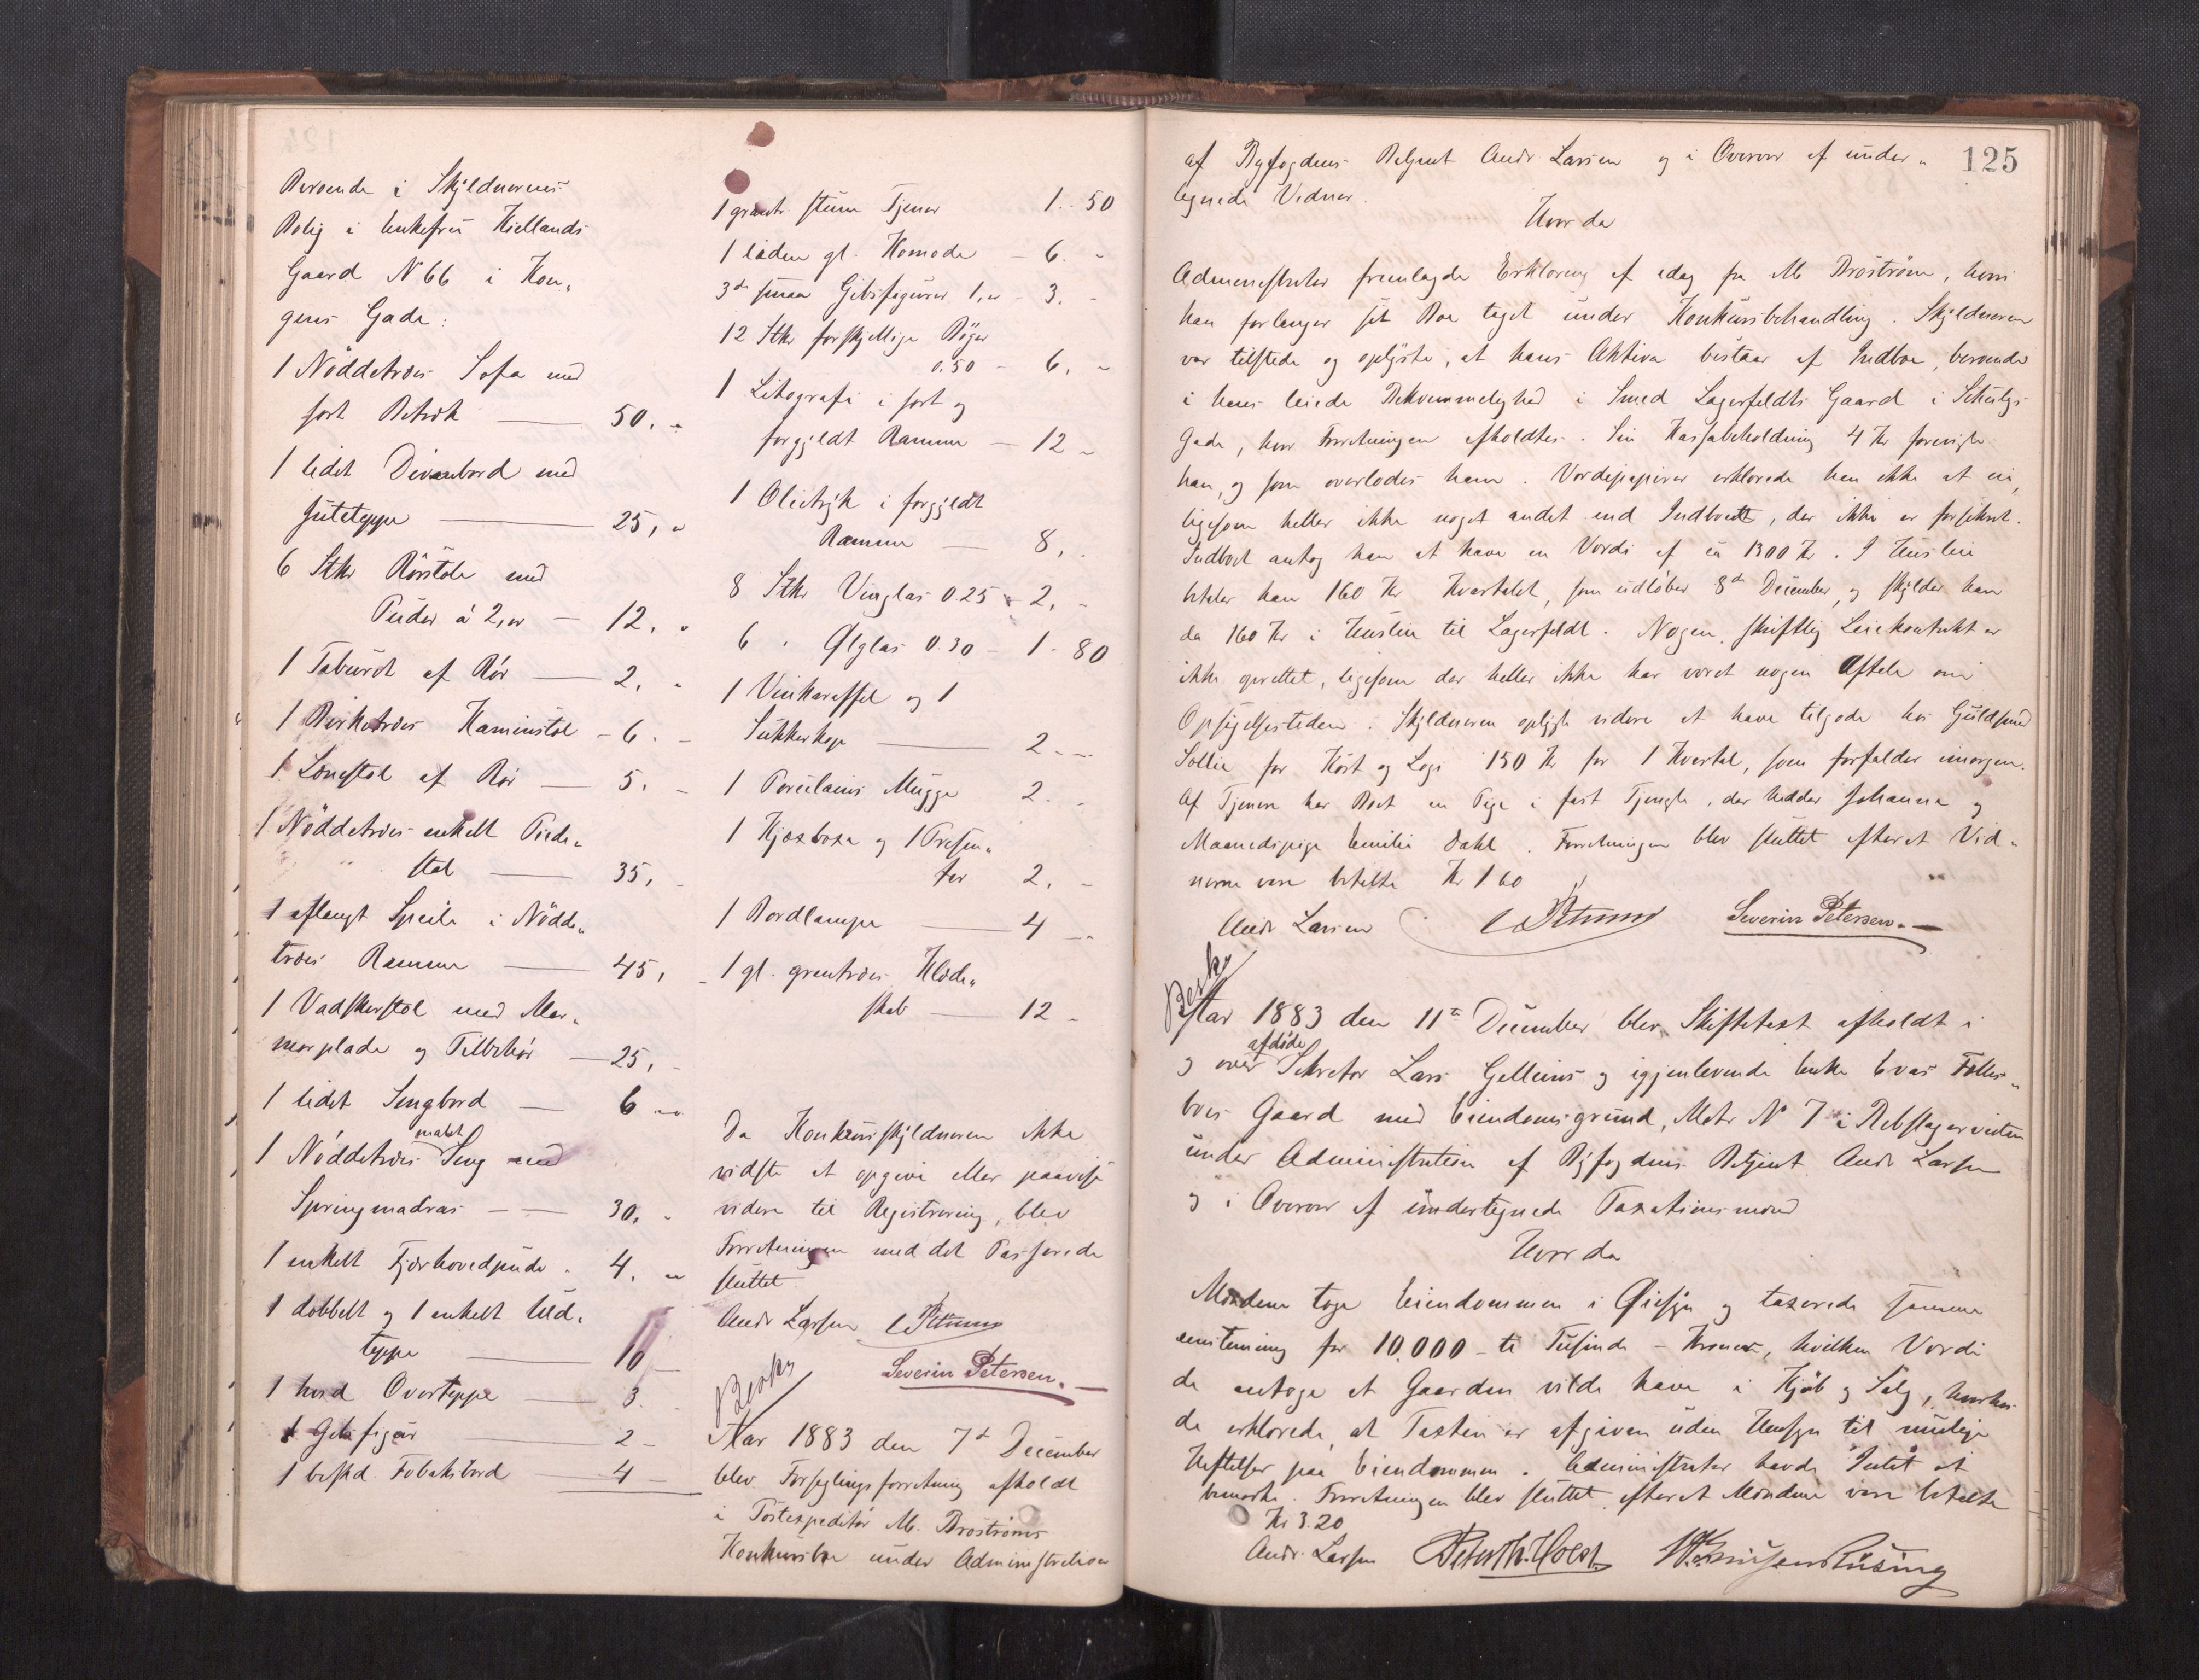 Beroende i Skyldnerens
Bolig i Enkefru Kiellands
Gaard N 66 i Kon„
gens Gade:
1 Nöddetræs Sofa med
sort Betræk — 50. „
1 lidet Divanbord med
Juteteppe — 25, „
6 Stkr Rörstole med
Puder á 2,„ — 12. „
1 Taburet af Rör — 2. „
1 Birketræs Kaminstol - 6. -
1 Lænestol af Rör — 5. -
1 Nöddetræs enkelt Piede„
stal — 35, -
1 aflangt Speile i Nödde„
træs Ramme — 45, -
1 Vadskerstol med Mar„
morplade og Tilbehör — 25, -
1 lidet Sengbord — 6 „
1 Nöddetræs malet Seng med
Springmadras — 30, -
1 enkelt Fjærhovedpude - 4. „
1 dobbelt og 1 enkelt Uld„
teppe — 10 -
1 hvid Overteppe — 3. -
1 Gibsfigur — 2 -
1 beskd. Tobaksbord — 4 -
1 grantr. stum Tjener 1. 50
1 liden gl. Komode - 6. -
3de smaa Gibsfigurer 1,„ - 3. -
12 Stkr forskjellige Böger
0.50 - 6, „
1 Litografi i sort og
forgyldt Ramme — 12 „
1 Olietryk i forgyldt
Ramme — 8, -
8 Stkr Vinglas 0.25 - 2, -
6 " Ølglas 0.30 - 1. 80
1 Vinkaraffel og 1
Sukkerkop — 2 -
1 Porcelains Mugge 2. -
1 Kjæxboxe og 1 Presen„
ter 2. -
1 Bordlampe — 4 -
1 gl. grantræs Klæde„
skab — 12 -
Da Konkursskyldneren ikke
vidste at opgive eller paavise
videre til Registrering, blev
Forretningen med det Passerede
sluttet.
Andr Larsen
Severin Petersen.
Aar 1883 den 7de December
blev Forseglingsforretning afholdt
i Postexpeditör M. Broströms
Konkursbo under Administration
125
af Byfogdens Betjent Andr Larsen og i Overvær af under„
tegnede Vidner.
Hvor da
Administrator fremlagde Erklæring af idag fra M Broström, hvori
han forlanger sit Bo taget under Konkursbehandling. Skyldneren
var tilstede og oplyste, at hans Aktiva bestaar af Indbo, beroende
i hans leiede Bekvemmelighed i Smed Lagerfeldts Gaard i Schultz
Gade, hvor Forretningen afholdtes. Sin Kassabeholdning 4 Kr foreviste
han, og som overlodes ham. Værdipapirer erklærede han ikke at eie,
ligesom heller ikke noget andet end Indboet, der ikke er forsikret.
Indboet antog han at have en Værdi af ca 1300 Kr. I Husleie
betaler han 160 Kr Kvartalet, som udlöber 8de December, og skylder han
da 160 Kr i Husleie til Lagerfeldt. Nogen skriftlig Leiekontrakt er
ikke oprettet, ligesom der heller ikke har været nogen Aftale om
Opsigelsestiden. Skyldneren oplyste videre at have tilgode hos Guldsmed
Sollie for Kost og Logi 150 Kr for 1 Kvartal, som forfalder imorgen.
Af Tjenere har Boet en Pige i fast Tjeneste, der hedder Johanna og
Maanedspige Emilie Dahl. Forretningen blev sluttet efterat Vid„
nerne vare betalte Kr 1.60
Andr Larsen Severin Petersen.
Aar 1883 den 11te December blev Skiftetaxt afholdt i
og over afdöde Sekretær Lars Gelleins og igjenlevende Enke Evas Fælles„
boes Gaard med Eiendomsgrund, Matr N 7 i Rebslagerveiten
under Administration af Byfogdens Betjent Andr Larsen
og i Overvær af undertegnede Taxationsmænd
Hvor da
Mændene toge Eiendommen i Øiesyn og taxerede samme
enstemmig for 10.000 - ti Tusinde - Kroner, hvilken Værdi
de antoge at Gaarden vilde have i Kjöb og Salg, hvorhos
de erklærede, at Taxten er afgiven uden Hensyn til mulige
Heftelser paa Eiendommen. Administrator havde Intet at
bemærke. Forretningen blev sluttet, efterat Mændene vare betalte
Kr 3.20
Andr. Larsen Peter Th. Holst